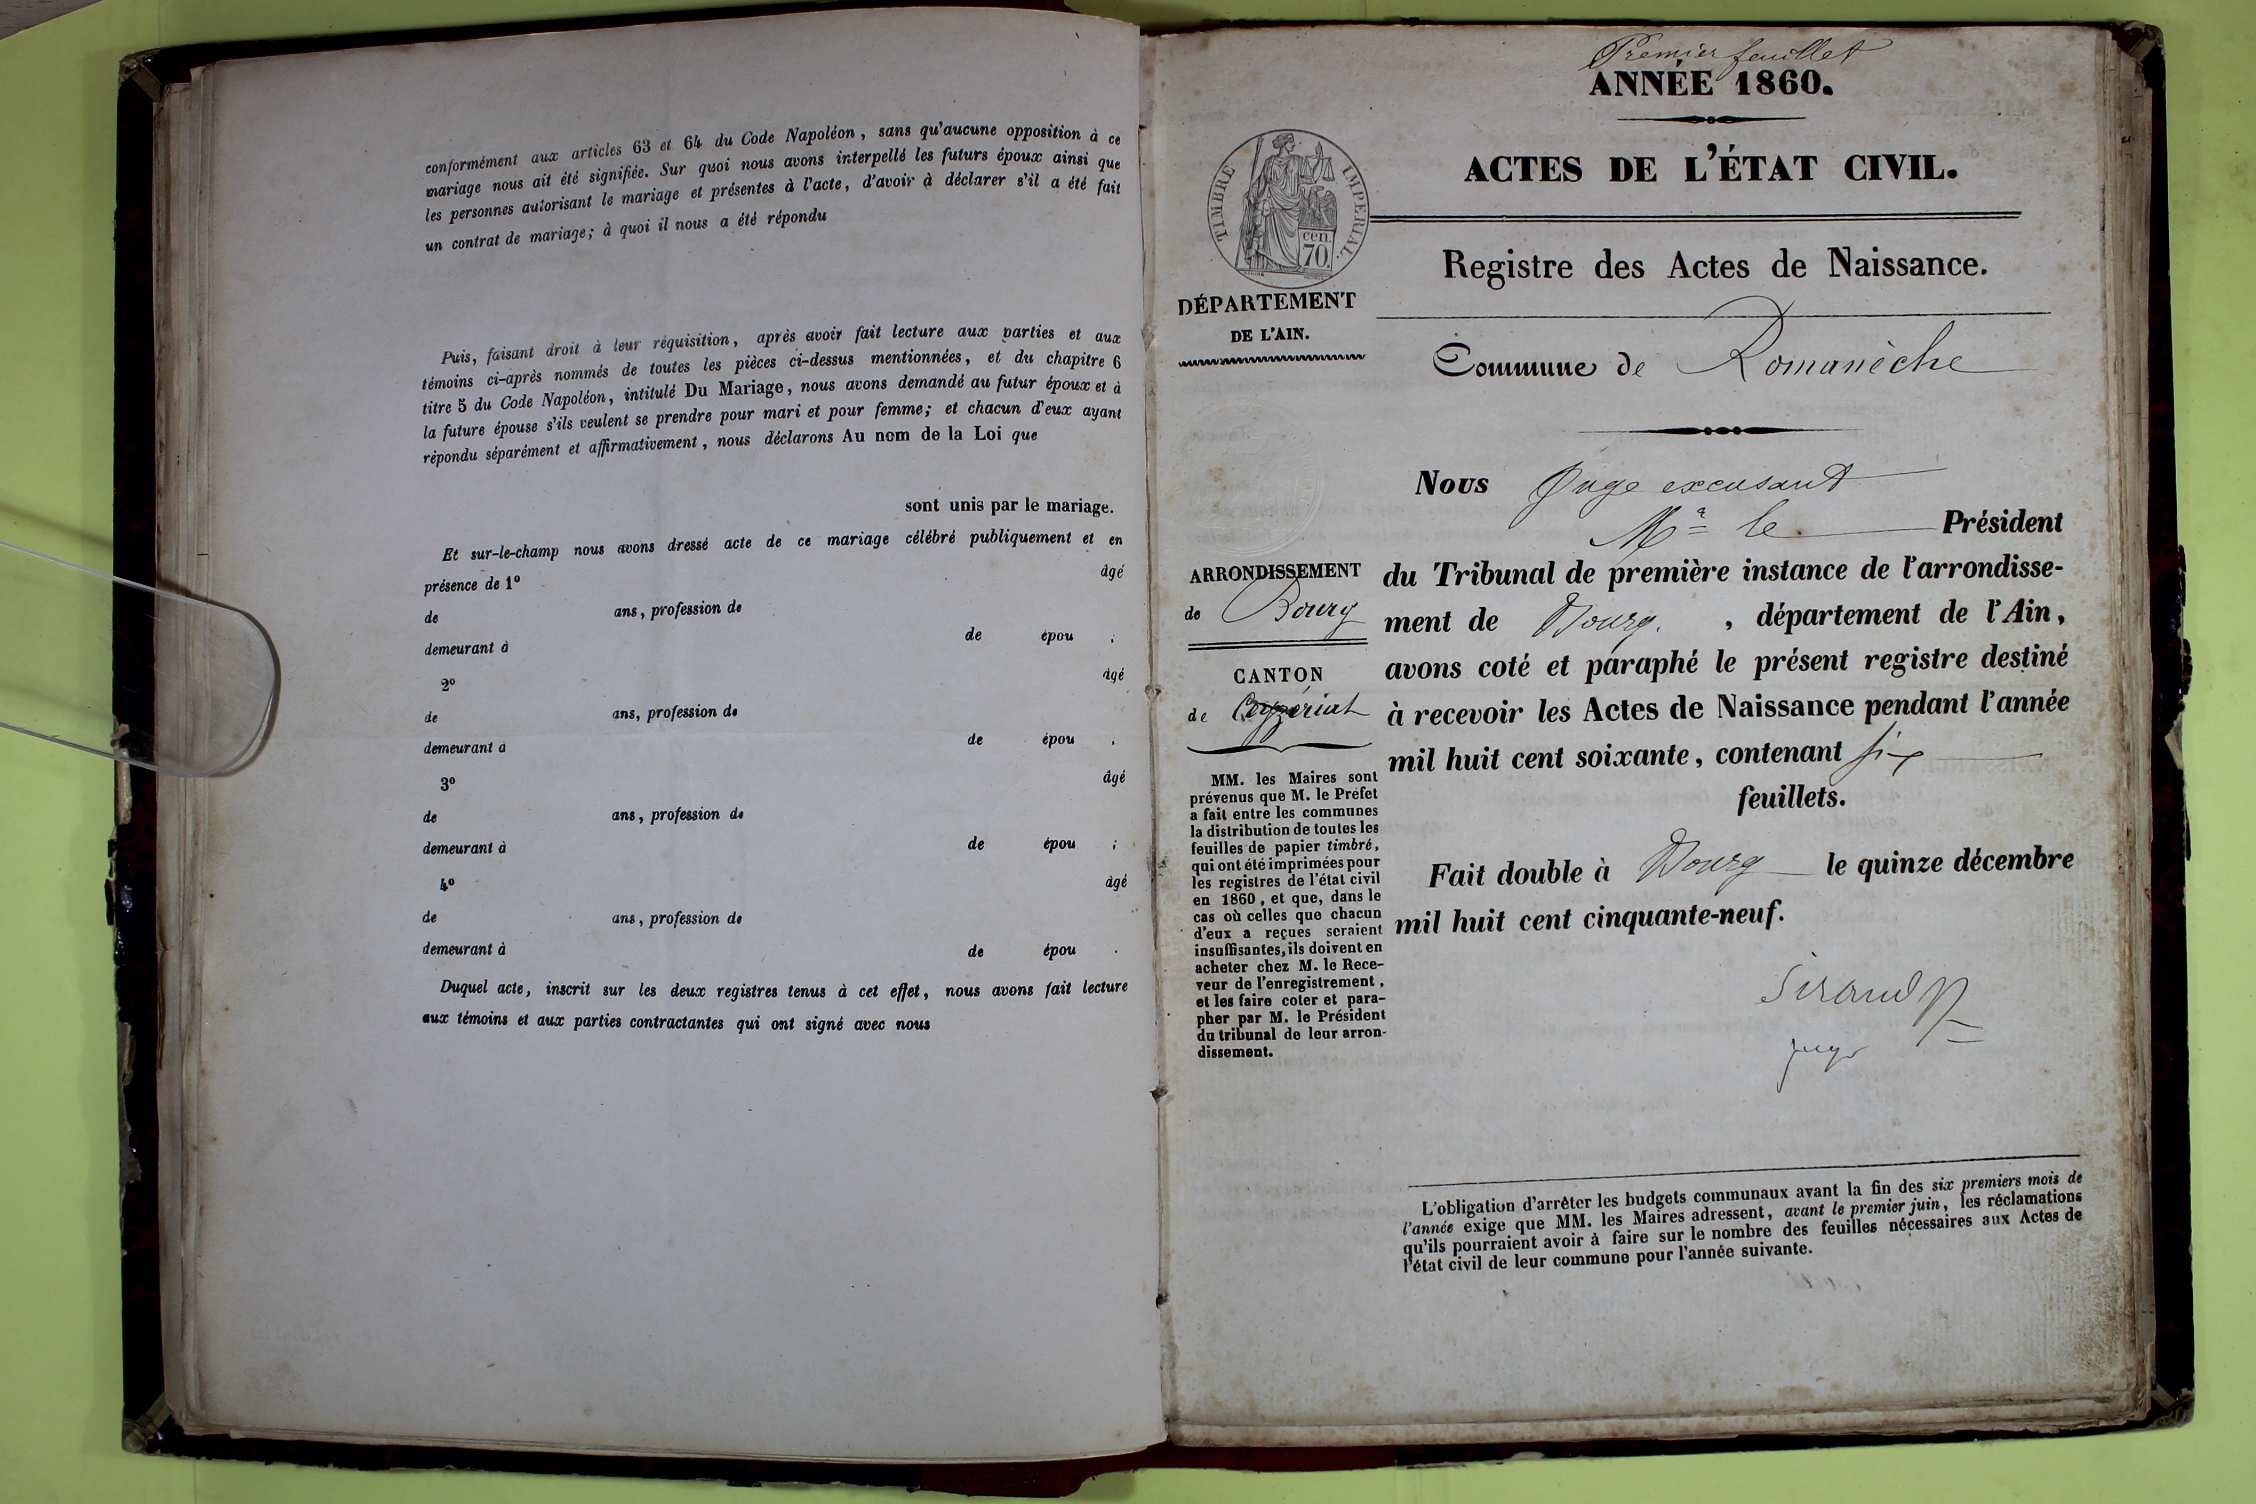 conformément aux articles 63 et 64 du Code Napoléon, sans qu'aucune opposition à ce
mariage nous ait été signifiée. Sur quoi nous avons interpellé les futurs époux ainsi que
les personnes autorisant le mariage et présentes à l'acte, d'avoir à déclarer s'il a été fait
un contrat de mariage; à quoi il nous a été répondu
Puis, faisant droit à leur réquisition, après avoir fait lecture aux parties et aux
témoins ci-après nommés de toutes les pièces ci-dessus mentionnées, et du chapitre 6
titre 5 du Code Napoléon, intitulé Du Mariage, nous avons demandé au futur époux et à
la future épouse s'ils veulent se prendre pour mari et pour femme; et chacun d'eux ayant
répondu séparément et affirmativement, nous déclarons Au nom de la Loi que
sont unis par le mariage.
Et sur-le-champ nous avons dressé acte de ce mariage célébré publiquement et en
présence de 1º âgé
de ans, profession de
demeurant à de épou ;
2º âgé
de ans, profession de
demeurant à de épou ,
3º âgé
de ans, profession de
demeurant à de épou ;
4º âgé
de ans, profession de
demeurant à de épou .
Duquel acte, inscrit sur les deux registres tenus à cet effet, nous avons fait lecture
aux témoins et aux parties contractantes qui ont signé avec nous
Premier feuillet
ANNÉE 1860.
ACTES DE L'ÉTAT CIVIL.
TIMBRE IMPERIAL.
cen.
70.
Registre des Actes de Naissance.
DÉPARTEMENT
DE L'AIN.
Commune de Romanèche
ARRONDISSEMENT
de Bourg
CANTON
de Ceyzériat
MM. les Maires sont
prévenus que M. le Préfet
a fait entre les communes
la distribution de toutes les
feuilles de papier timbré,
qui ont été imprimées pour
les registres de l'état civil
en 1860, et que, dans le
cas où celles que chacun
d'eux a reçues seraient
insuffisantes, ils doivent en
acheter chez M. le Rece-
veur de l'enregistrement,
et les faire coter et para-
pher par M. le Président
du tribunal de leur arron-
dissement.
Nous Juge excusant
Mr le Président
du Tribunal de première instance de l'arrondisse-
ment de Bourg. , département de l'Ain,
avons coté et paraphé le présent registre destiné
à recevoir les Actes de Naissance pendant l'année
mil huit cent soixante, contenant six
feuillets.
Fait double à Bourg le quinze décembre
mil huit cent cinquante-neuf.
Sirand
juge
L'obligation d'arrêter les budgets communaux avant la fin des six premiers mois de
l'année exige que MM. les Maires adressent, avant le premier juin, les réclamations
qu'ils pourraient avoir à faire sur le nombre des feuilles nécessaires aux Actes de
l'état civil de leur commune pour l'année suivante.